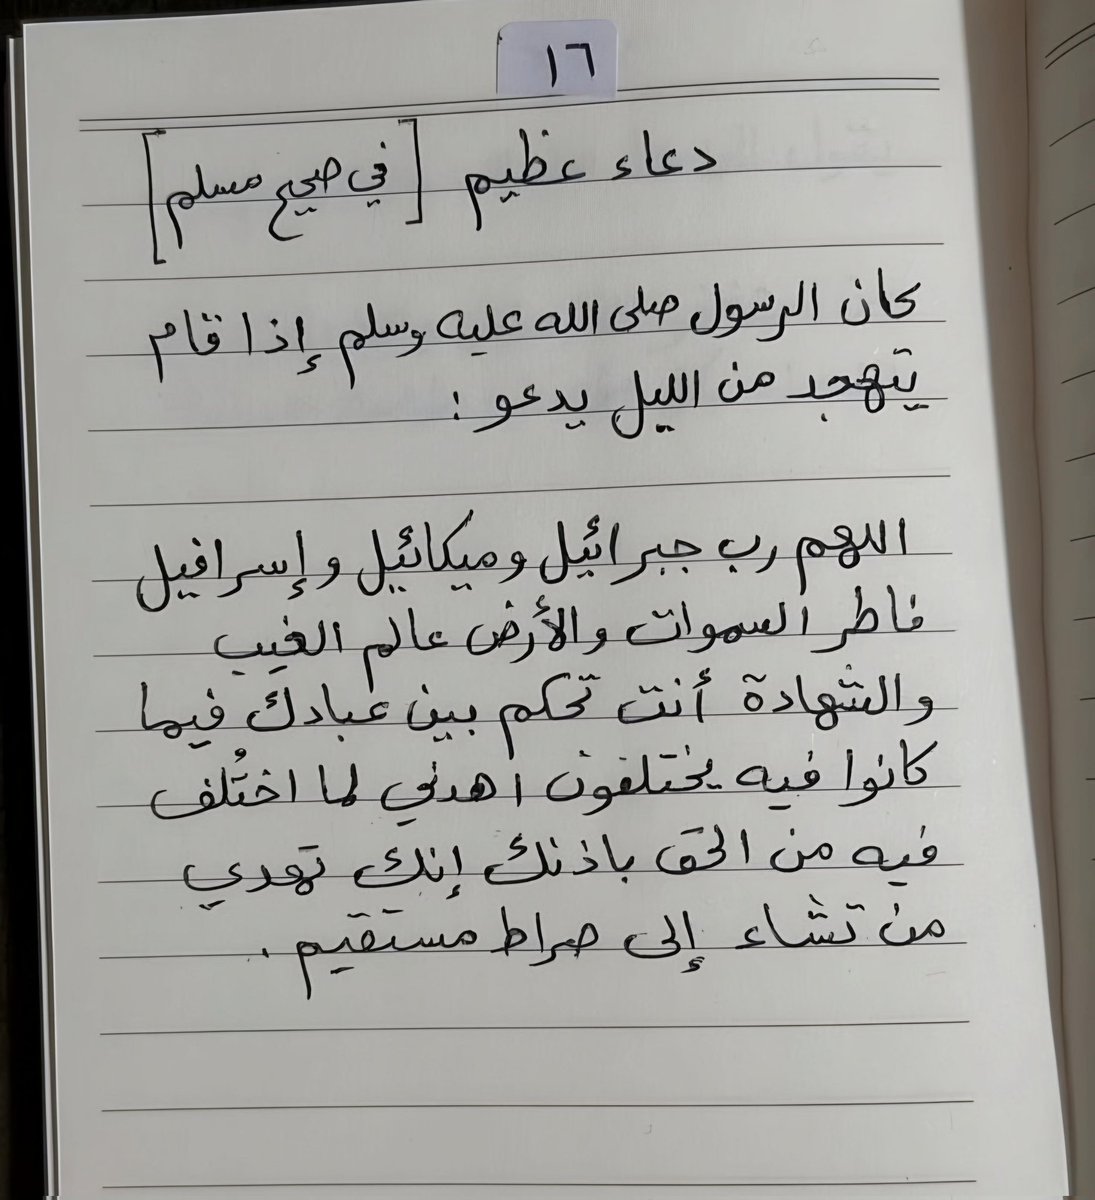 ١٦
دعاء عظيم [في صحيح مسلم]
كان الرسول صلى الله عليه وسلم إذا قام
يتهجد من الليل يدعو :
اللهم رب جبرائيل وميكائيل وإسرافيل
فاطر السموات والأرض عالم الغيب
والشهادة أنت تحكم بين عبادك فيما
كانوا فيه يختلفون اهدني لما اختُلف
فيه من الحق باذنك إنك تهدي
من تشاء إلى صراط مستقيم .